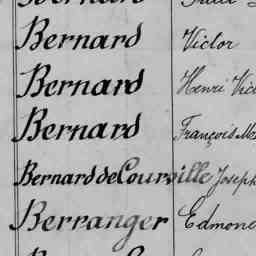 Bernard Victor
Bernard Henri Vic
Bernard François Me
Bernard de Courville Joseph
Berranger Edmon